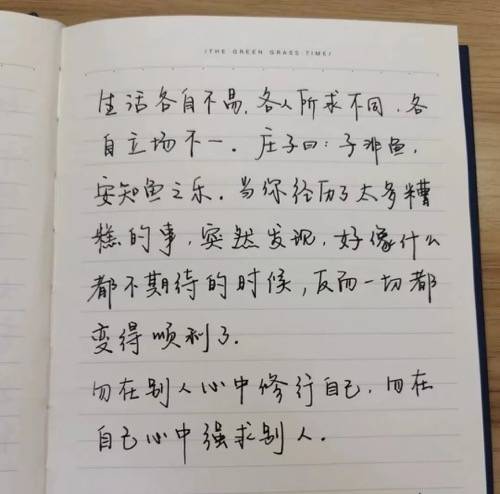 /THE GREEN GRASS TIME/
生活各自不易,各人所求不同,各
自立场不一.庄子曰:子非鱼,
安知鱼之乐.当你经历了太多糟
糕的事,突然发现,好像什么
都不期待的时候,反而一切都
变得顺利了.
勿在别人心中修行自己,勿在
自己心中强求别人.